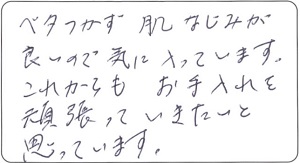 ベタつかず 肌なじみが
良いので気に入っています。
これからも お手入れを
頑張っていきたいと
思っています。